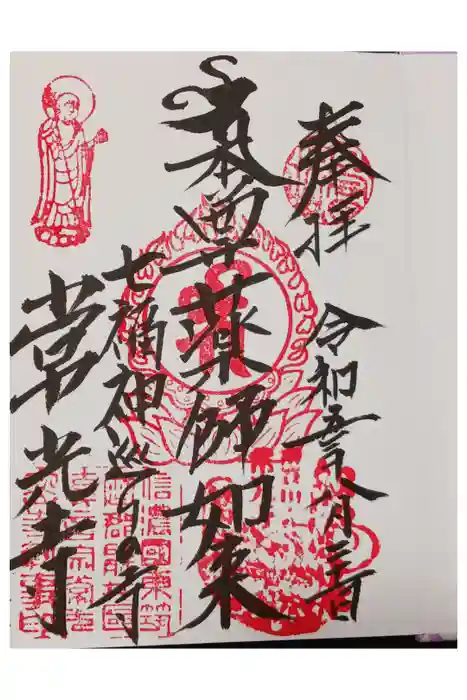 奉拝
令和五年八月三日
本尊薬師如来
七福神巡りの寺
常光寺
信濃國東筑